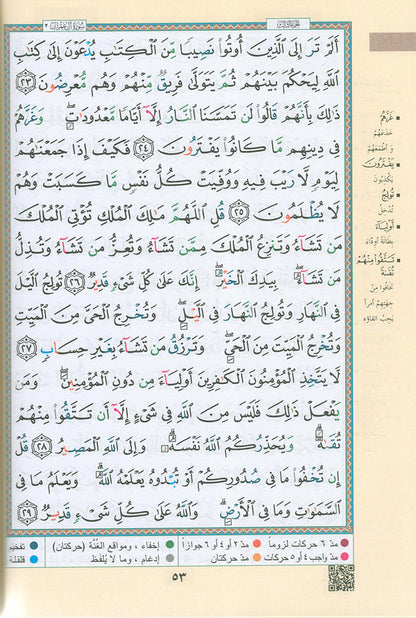 سورة آل عمران ٣
الجزء الثالث
أَلَمْ تَرَ إِلَى الَّذِينَ أُوتُوا نَصِيبًا مِّنَ الْكِتَابِ يُدْعَوْنَ إِلَى كِتَابِ
اللَّهِ لِيَحْكُمَ بَيْنَهُمْ ثُمَّ يَتَوَلَّى فَرِيقٌ مِّنْهُمْ وَهُم مُّعْرِضُونَ ٢٣
ذَلِكَ بِأَنَّهُمْ قَالُوا لَن تَمَسَّنَا النَّارُ إِلَّا أَيَّامًا مَّعْدُودَاتٍ وَغَرَّهُمْ
فِي دِينِهِم مَّا كَانُوا يَفْتَرُونَ ٢٤ فَكَيْفَ إِذَا جَمَعْنَاهُمْ
لِيَوْمٍ لَّا رَيْبَ فِيهِ وَوُفِّيَتْ كُلُّ نَفْسٍ مَّا كَسَبَتْ وَهُمْ
لَا يُظْلَمُونَ ٢٥ قُلِ اللَّهُمَّ مَالِكَ الْمُلْكِ تُؤْتِي الْمُلْكَ
مَن تَشَاءُ وَتَنزِعُ الْمُلْكَ مِمَّن تَشَاءُ وَتُعِزُّ مَن تَشَاءُ وَتُذِلُّ
مَن تَشَاءُ بِيَدِكَ الْخَيْرُ إِنَّكَ عَلَى كُلِّ شَيْءٍ قَدِيرٌ ٢٦ تُولِجُ اللَّيْلَ
فِي النَّهَارِ وَتُولِجُ النَّهَارَ فِي اللَّيْلِ وَتُخْرِجُ الْحَيَّ مِنَ الْمَيِّتِ
وَتُخْرِجُ الْمَيِّتَ مِنَ الْحَيِّ وَتَرْزُقُ مَن تَشَاءُ بِغَيْرِ حِسَابٍ ٢٧
لَّا يَتَّخِذِ الْمُؤْمِنُونَ الْكَافِرِينَ أَوْلِيَاءَ مِن دُونِ الْمُؤْمِنِينَ وَمَن
يَفْعَلْ ذَلِكَ فَلَيْسَ مِنَ اللَّهِ فِي شَيْءٍ إِلَّا أَن تَتَّقُوا مِنْهُمْ
تُقَاةً وَيُحَذِّرُكُمُ اللَّهُ نَفْسَهُ وَإِلَى اللَّهِ الْمَصِيرُ ٢٨ قُلْ
إِن تُخْفُوا مَا فِي صُدُورِكُمْ أَوْ تُبْدُوهُ يَعْلَمْهُ اللَّهُ وَيَعْلَمُ مَا فِي
السَّمَاوَاتِ وَمَا فِي الْأَرْضِ وَاللَّهُ عَلَى كُلِّ شَيْءٍ قَدِيرٌ ٢٩
غَرَّهُمْ
خدعهم
وأطمعهم
يَفْتَرُونَ
يكذبون
تُولِجُ
تُدخل
أَوْلِيَاءَ
بطانة أودّاء
تَتَّقُوا مِنْهُمْ
تُقَاةً
تخافوا من
جهتهم أمراً
يجب اتقاؤه
مدّ ٦ حركات لزوماً مدّ ٢ أو ٤ أو ٦ جوازاً إخفاء، ومواقع الغُنّة (حركتان) تفخيم
مدّ واجب ٤ أو ٥ حركات مدّ حركتان إدغام، وما لا يُلفظ قلقلة
٥٣